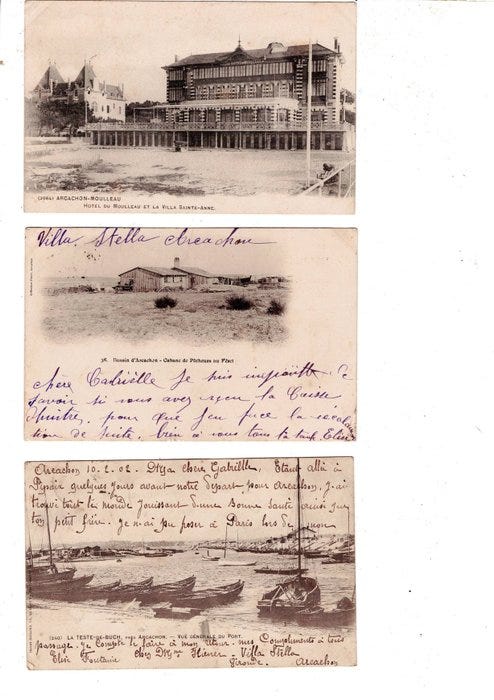 (3984) ARCACHON-MOULLEAU
HOTEL DU MOULLEAU ET LA VILLA SAINTE-ANNE.
Villa Stella Arcachon
36. Bassin d'Arcachon - Cabane de Pêcheurs au Féret
chère Gabrielle Je suis impatiente de
savoir si vous avez reçu la Caisse
d'huitres, pour que j'en fuce la
tion de suite, bien à vous tous ta tante Elise
Arcachon 10.2.02. Ma chère Gabrielle. Etant allé à
quelques jours avant notre départ pour Arcachon, J'ai
trouvé tout le monde Jouissant d'une Bonne Santé ainsi que
ton petit frère. Je n'ai pu poser à Paris lors de mon
(240) LA TESTE-DE-BUCH, PRÈS ARCACHON. — VUE GÉNÉRALE DU PORT.
passage. Je Compte le faire à mon retour. mes Compliments à tous
Elise Fontaine chez Mme - Villa Stella
Gironde. Arcachon